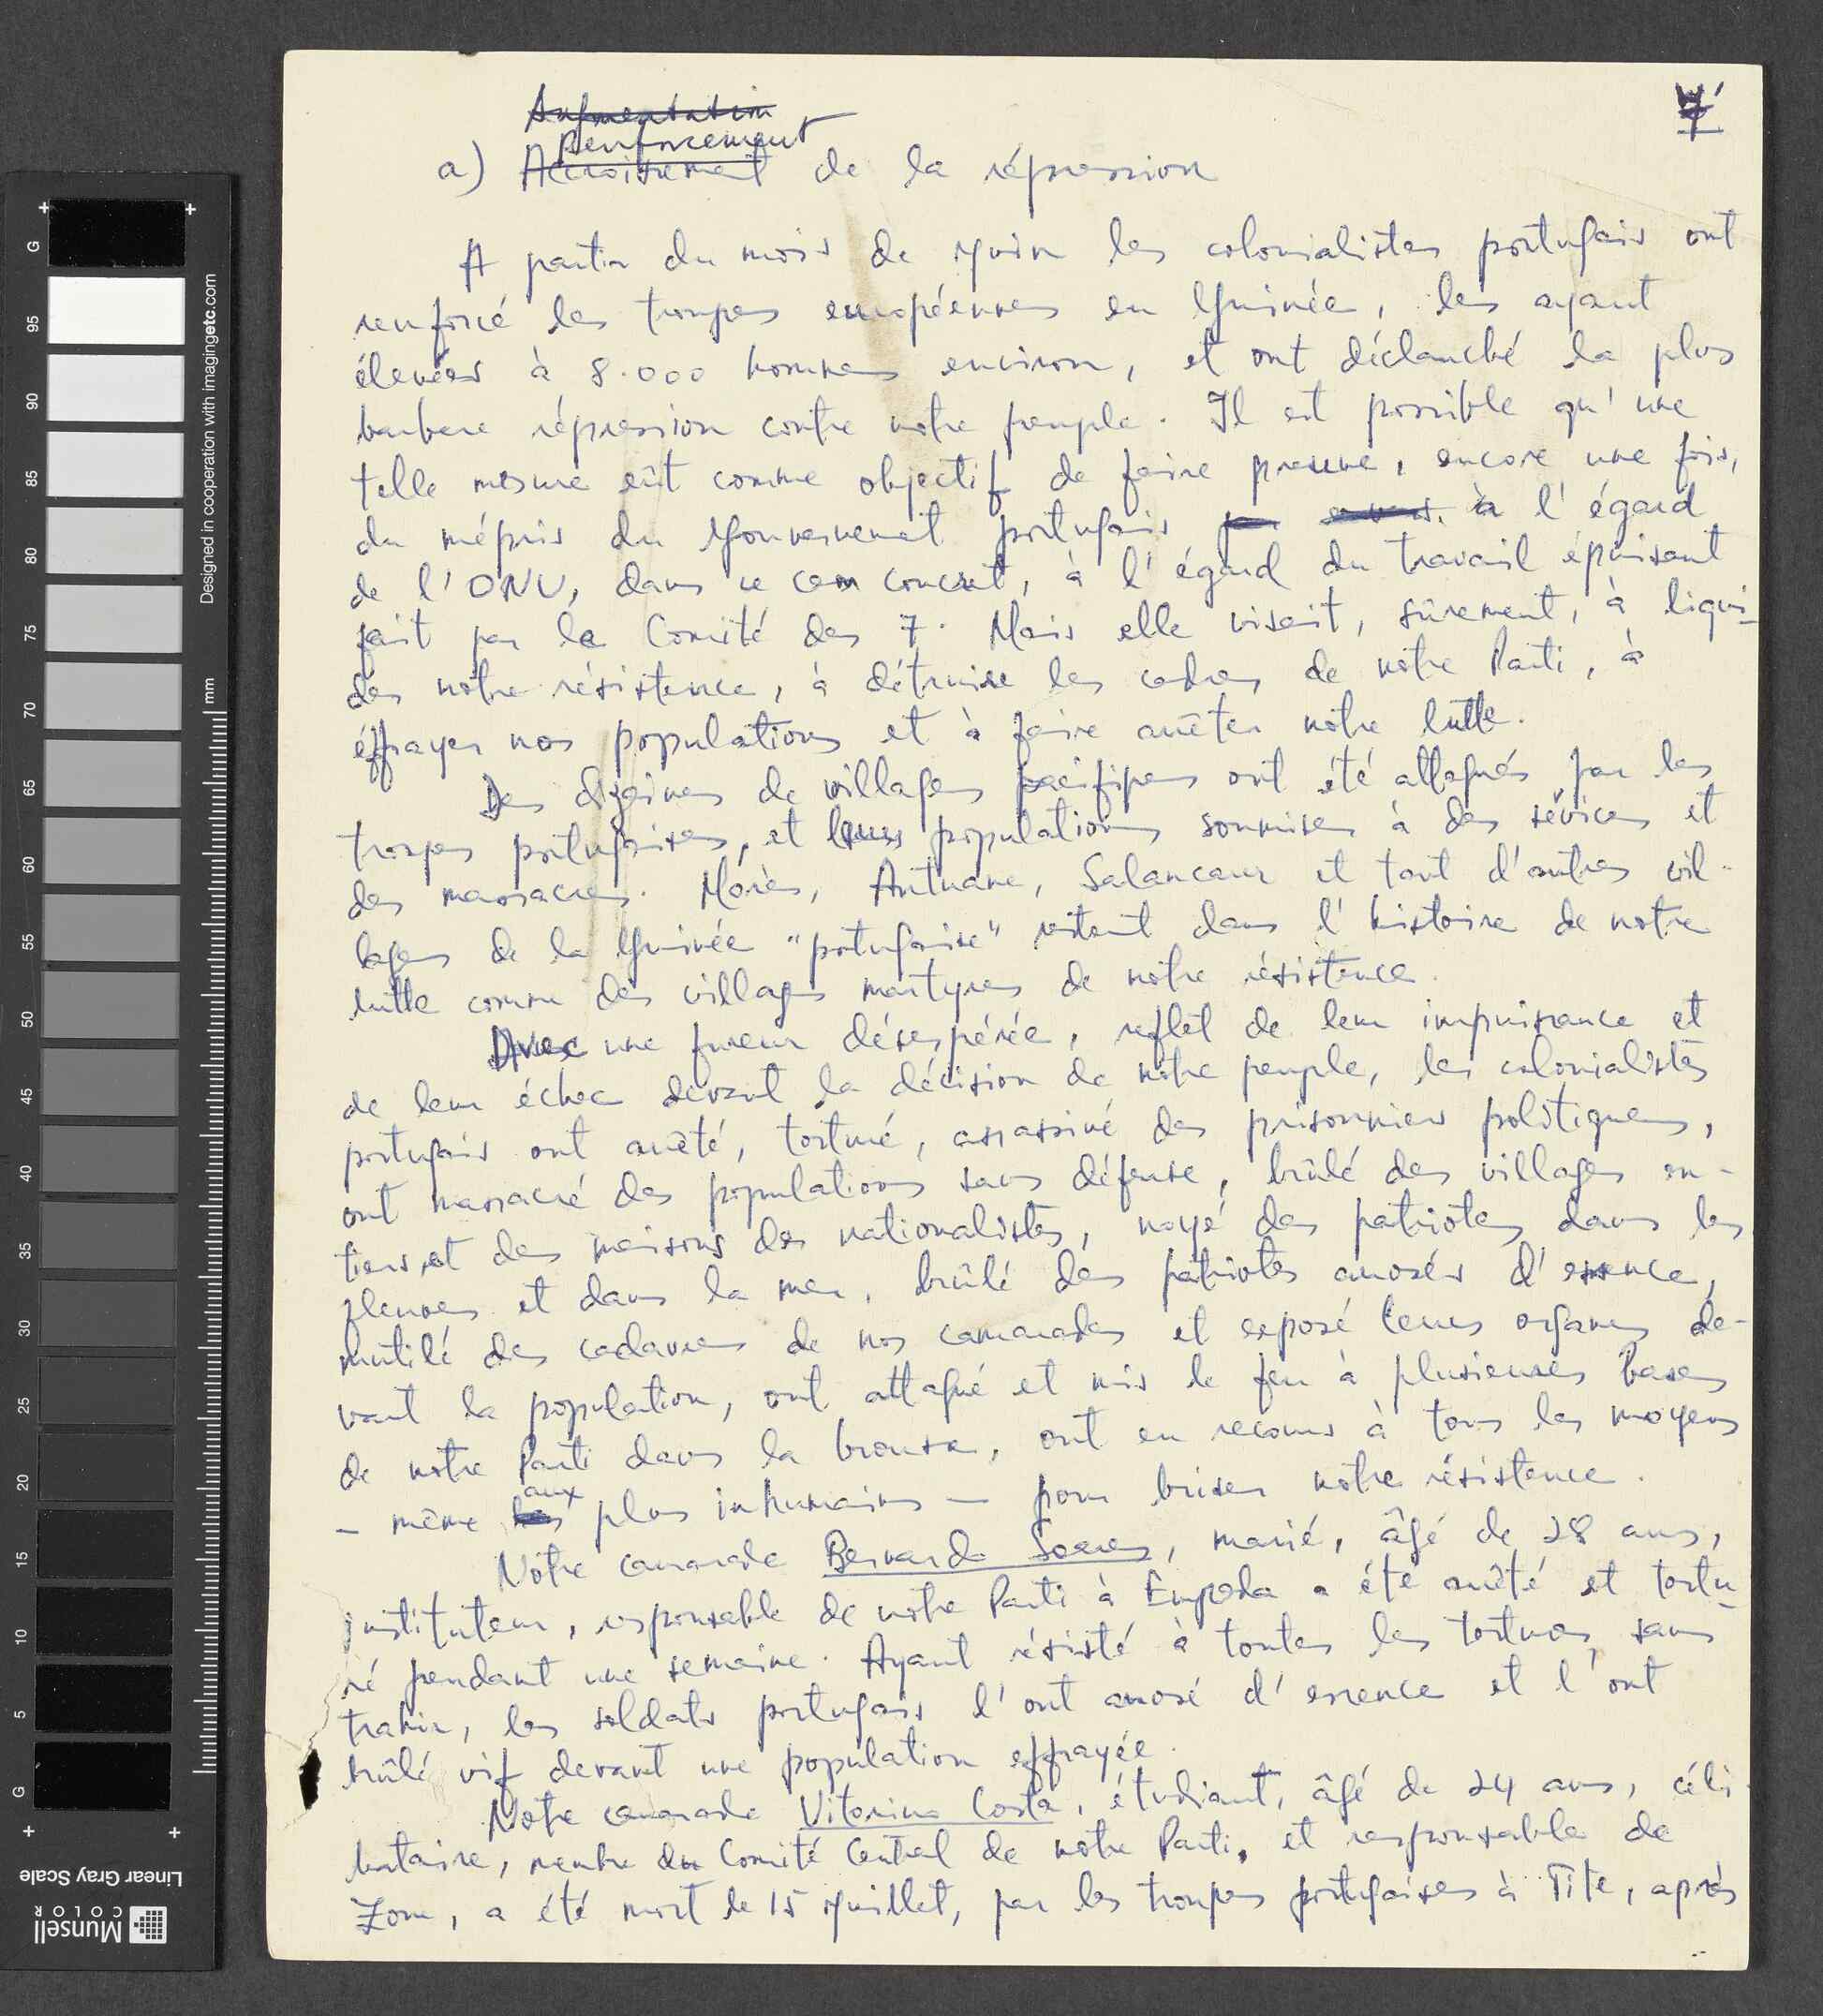 7
Augmentation
Renforcement
a) Accroissement de la répression
A partir du mois de juin les colonialistes portugais ont
renforcé les troupes européennes en Guinée, les ayant
élevées à 8.000 hommes environ, et ont déclanché la plus
barbare répression contre notre peuple. Il est possible qu'une
telle mesure eût comme objectif de faire preuve, encore une fois,
du mépris du Gouvernement portugais à l'égard
de l'ONU, dans ce cas concret, à l'égard du travail épuisant
fait par le Comité des 7. Mais elle visait, sûrement, à liqui-
der notre résistence, à détruire les cadres de notre Parti, à
éffrayer nos populations et à faire arrêter notre lutte.
Des dizaines de villages pacifiques ont été attaqués par les
troupes portugaises, et leurs populations soumises à des sévices et
des massacres. Morès, Antuane, Salancaur et tant d'autres vil-
lages de la Guinée "portugaise" restent dans l'histoire de notre
lutte comme des villages martyres de notre résistence.
Avec une fureur désespérée, reflet de leur impuissance et
de leur échec devant la décision de notre peuple, les colonialistes
portugais ont arrêté, torturé, assassiné des prisonniers politiques,
ont massacré des populations sans défense, brûlé des villages en-
tiers et des maisons des nationalistes, noyé des patriotes dans les
fleuves et dans la mer, brûlé des patriotes arrosés d'essence,
mutilé des cadavres de nos camarades et exposé leurs organes de-
vant la population, ont attaqué et mis le feu à plusieures bases
de notre Parti dans la brousse, ont eu recours à tous les moyens
- même aux plus inhumains - pour briser notre résistence.
Notre camarade Bernardo Soares, marié, âgé de 28 ans,
instituteur, responsable de notre Parti à Empada a été arrêté et tortu-
ré pendant une semaine. Ayant résisté à toutes les tortures, sans
trahir, les soldats portugais l'ont arrosé d'essence et l'ont
brûlé vif devant une population effrayée.
Notre camarade Vitorino Costa, étudiant, âgé de 24 ans, céli-
bataire, membre du Comité Central de notre Parti, et responsable de
Zone, a été mort le 15 juillet, par les troupes portugaises à Tite, après
Designed in cooperation with imagingetc.com
mm
G
95
90
85
80
75
70
65
60
55
50
45
40
35
30
25
20
15
10
5
G
Linear Gray Scale
Munsell
COLOR